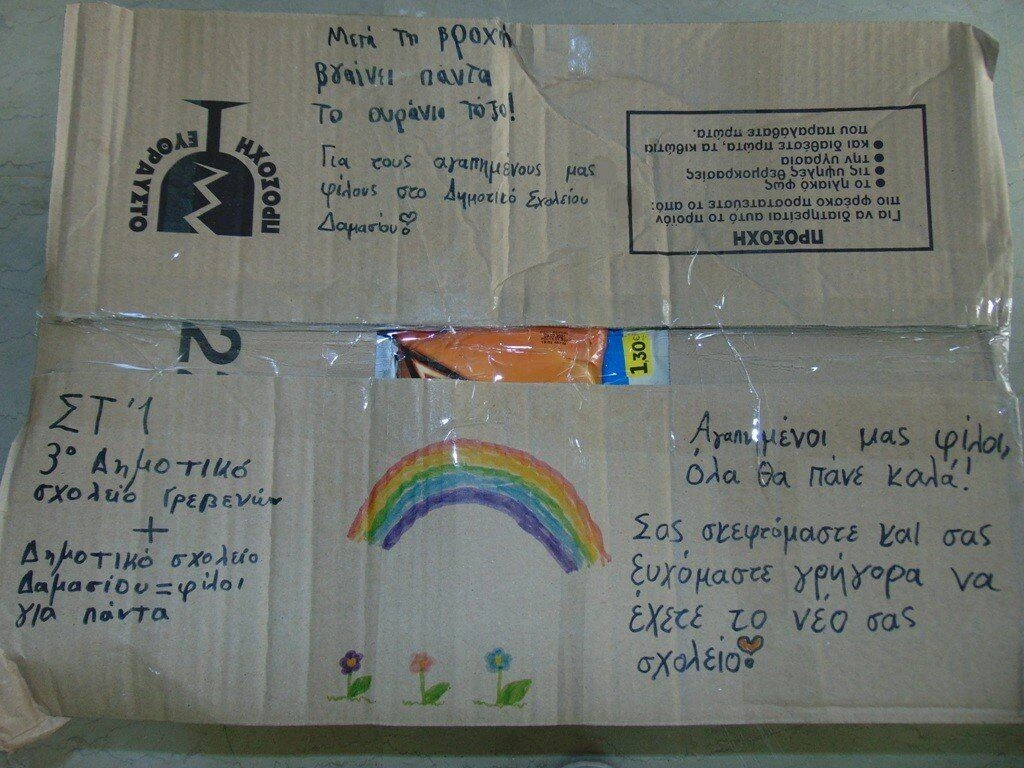 Μετά τη βροχή
βγαίνει πάντα
το ουράνιο τόξο!
Για τους αγαπημένους μας
φίλους στο Δημοτικό Σχολείου
Δαμασίου!
ΠΡΟΣΟΧΗ
ΕΥΘΡΑΥΣΤΟ
ΠΡΟΣΟΧΗ
Για να διατηρείται αυτό το προϊόν
πιο φρέσκο προστατεύστε το από:
● το ηλιακό φως
● τις ψηλές θερμοκρασίες
● την υγρασία
● και διαθέσετε πρώτα, τα κιβώτια
που παραλάβατε πρώτα.
2
1,30€
ΣΤ'1
3ο Δημοτικό
σχολείο Γρεβενών
+
Δημοτικό σχολείο
Δαμασίου=φίλοι
για πάντα
Αγαπημένοι μας φίλοι,
όλα θα πάνε καλά!
Σας σκεφτόμαστε και σας
ευχόμαστε γρήγορα να
έχετε το νέο σας
σχολείο!